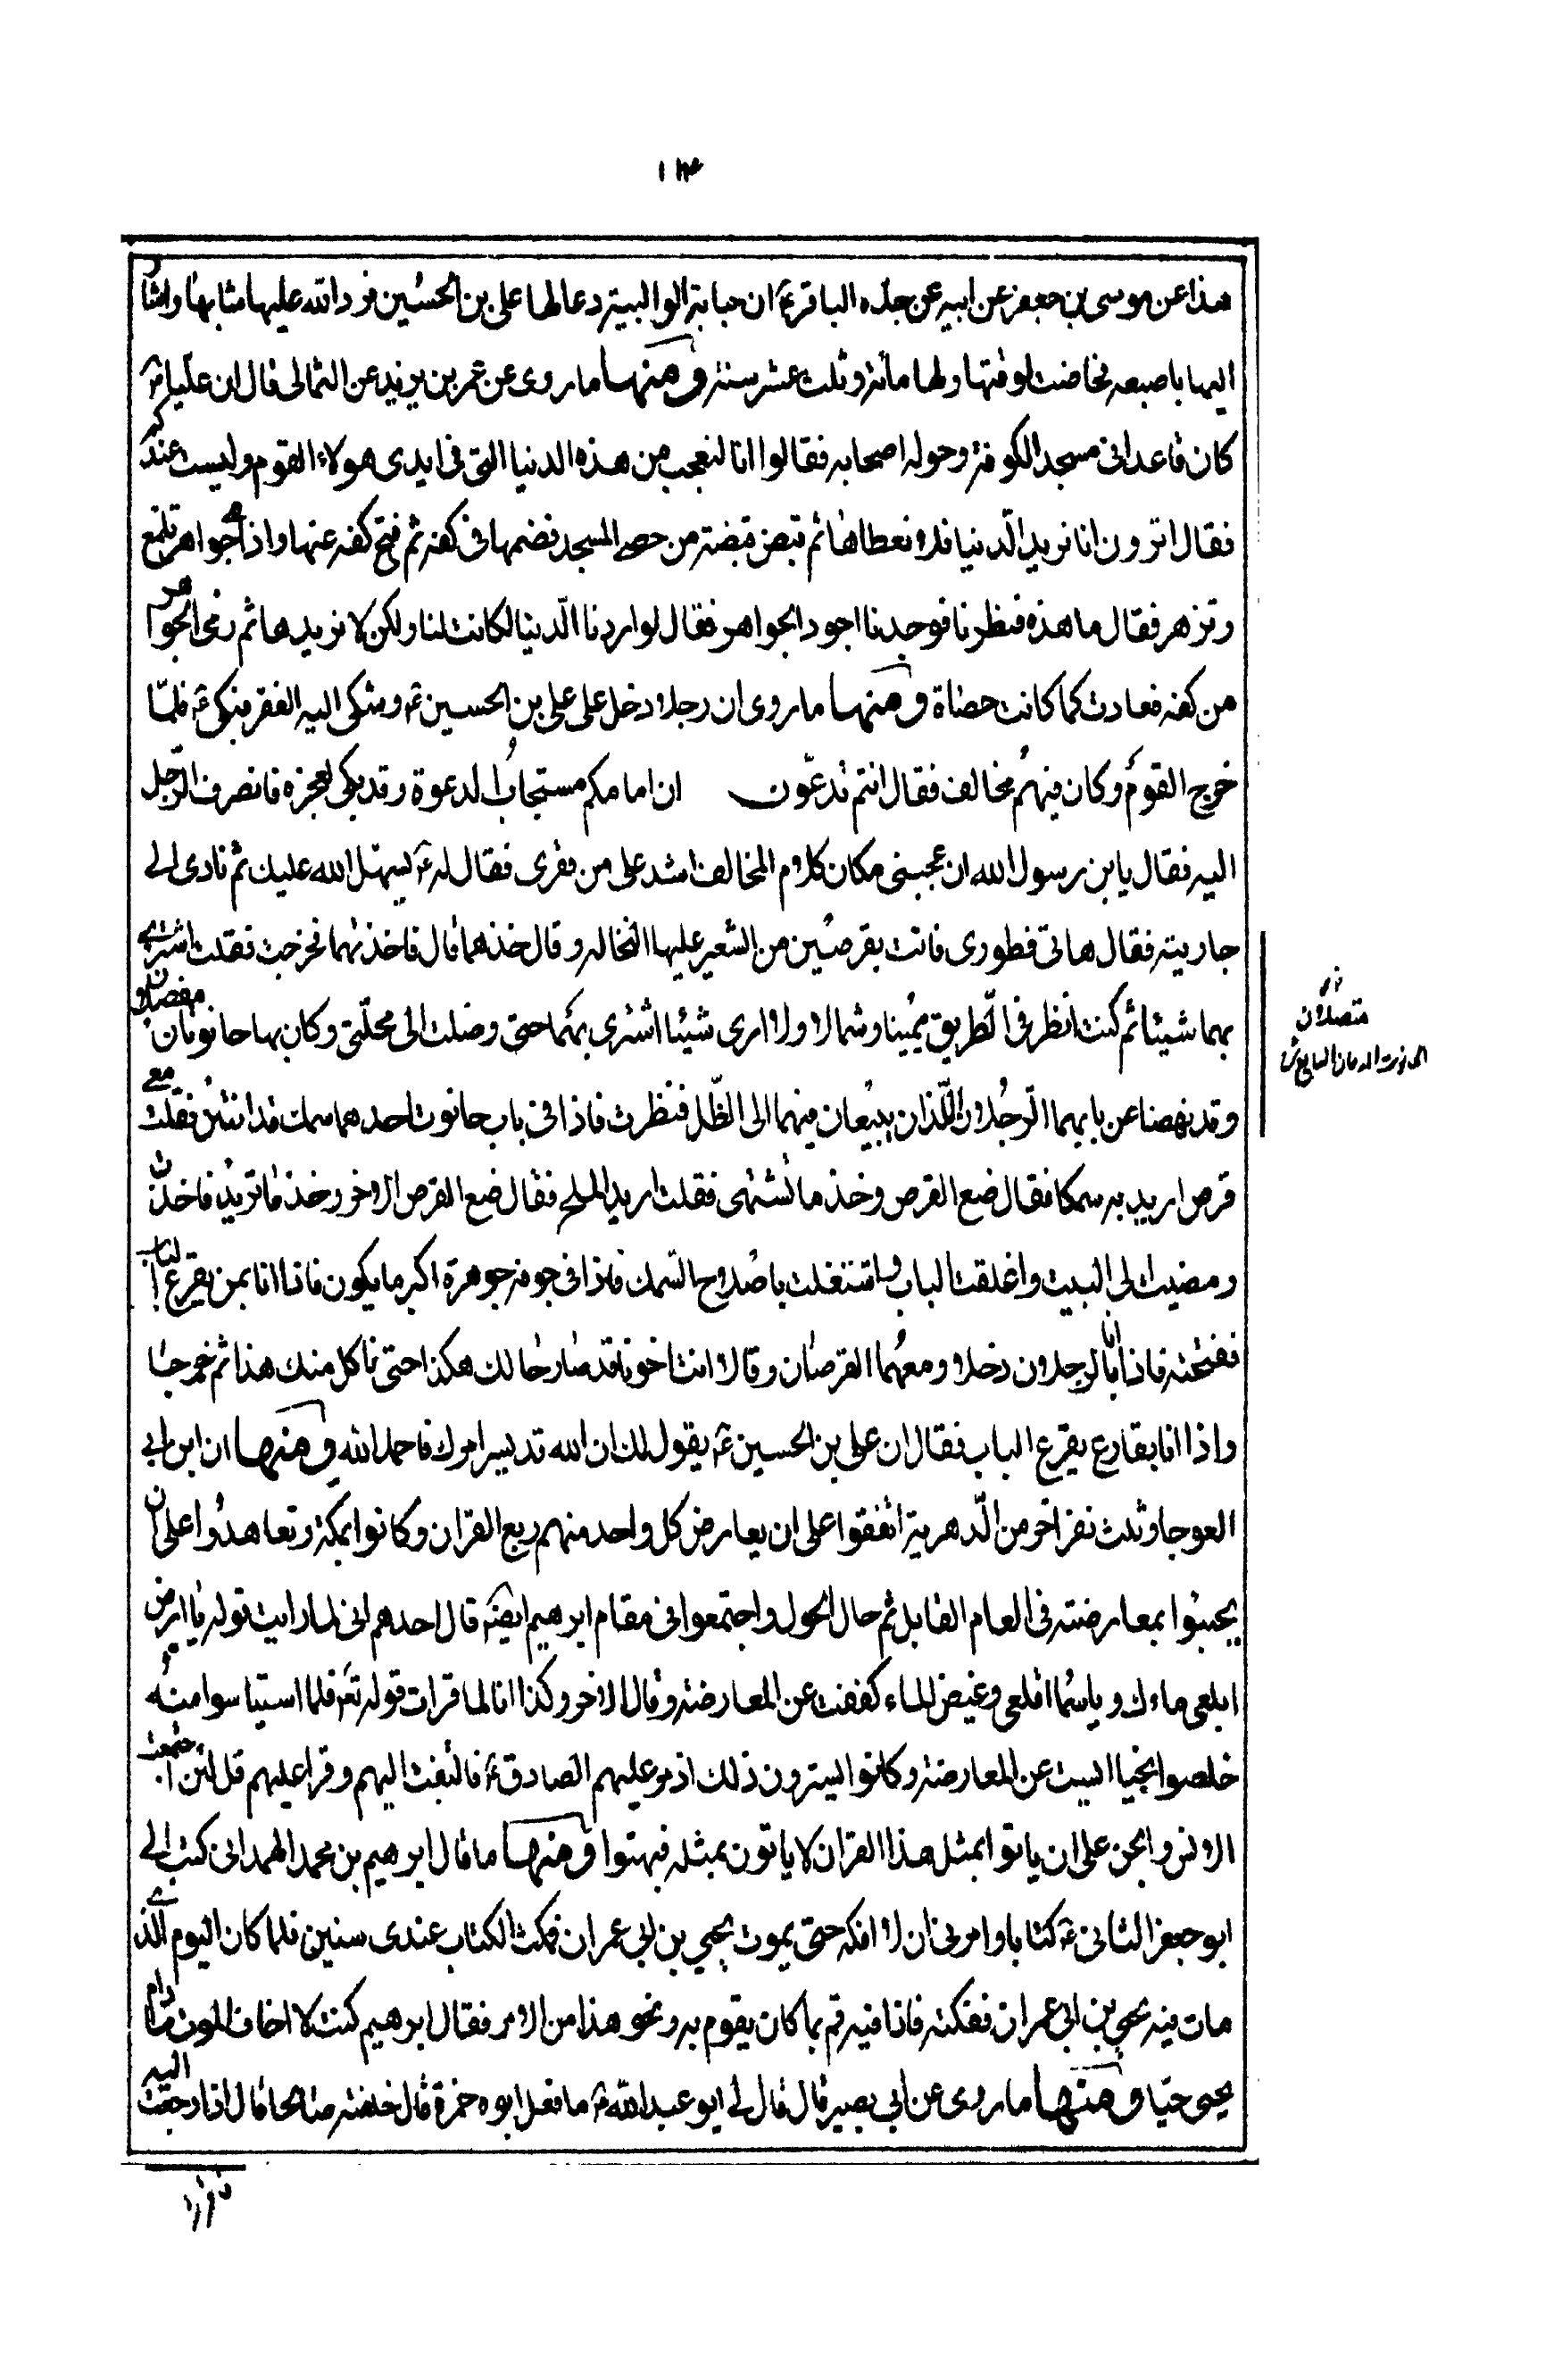 ١١٣
هذا عن موسى بن جعفر عن ابيه عن جده الباقر ع ان حبابة الوالبية دعا لها على بن الحسين فرد الله عليها شبابها واشار
اليها باصبعه فحاضت لوقتها ولها مائة وثلث عشر سنة ومنها ما روى عن عمر بن يزيد عن الثمالى قال ان عليا ع
كان قاعدا فى مسجد الكوفة وحوله اصحابه فقالوا انا لنعجب من هذه الدنيا التى فى ايدى هولاء القوم وليست عندكم
فقال اترون انا نريد الدنيا فلا نعطاها ثم قبض قبضة من حصى المسجد فضمها فى كفه ثم فتح كفه عنها واذا هى جواهر تلمع
وتزهر فقال ما هذه فنظرنا فوجدنا اجود الجواهر فقال لو اردنا الدنيا لكانت لنا ولكن لا نريدها ثم رمى الجواهر
من كفه فعادت كما كانت حصاة ومنها ما روى ان رجلا دخل على على بن الحسين ع وشكى اليه الفقر فبكى ع فلما
خرج القوم وكان فيهم مخالف فقال انتم تدعون ان امامكم مستجاب الدعوة وقد بكى لعجزه فانصرف الرجل
اليه فقال يا بن رسول الله ان عجبنى مكان كلام المخالف اشد على من فقرى فقال له ع يسهل الله عليك ثم نادى الى
جاريته فقال هاتى فطورى فاتت بقرصين من الشعير عليها النخاله وقال خذهما قال فاخذتهما فخرجت فقلت اشترى
بهما شيئا ثم كنت انظر فى الطريق يمينا وشمالا ولا ارى شيئا اشترى بهما حتى وصلت الى محلتى وكان بها حانوتان مفصلان
وقد نهضا عن بابهما الرجلان اللذان يبيعان فيهما الى الظل فنظرت فاذا فى باب حانوت احدهما سمك قد انتن فقلت معى
قرص اريد به سمكا فقال ضع القرص وخذ ما تشتهى فقلت اريد الملح فقال ضع القرص الاخر وخذ ما تريد فاخذت
ومضيت الى البيت واغلقت الباب واشتغلت باصلاح السمك فاذا فى جوفه جوهرة اكبر ما يكون فاذا انا بمن يقرع الباب
ففتحته فاذا انا بالرجلان دخلا ومعهما القرصان وقالا انت اخونا قد صار حالك هكذا حتى ناكل منك هذا ثم خرجا
واذا انا بقارع يقرع الباب فقال ان على بن الحسين ع يقول لك ان الله قد يسر امرك فاحمد الله ومنها ان ابن ابى
العوجا وثلث نفر اخر من الدهرية اتفقوا على ان يعارض كل واحد منهم ربع القران وكانوا بمكة وتعاهدوا على ان
يجيئوا بمعارضته فى العام القابل ثم حال الحول واجتمعوا فى مقام ابرهيم ايضه قال احدهم انى لما رايت قوله يا ارض
ابلعى ماءك ويا سما اقلعى وغيض الماء كففت عن المعارضة وقال الاخر وكذا انا لما قرات قوله تع فلما استياسوا منه
خلصوا نجيا ايست عن المعارضة وكانوا ليسترون ذلك اذ مر عليهم الصادق ع فالتفت اليهم وقرا عليهم قل لئن اجتمعت
الانس والجن على ان ياتوا بمثل هذا القران لا ياتون بمثله فبهتوا ومنها ما قال ابرهيم بن محمد الهمدانى كتب الى
ابو جعفر الثانى ع كتابا وامرنى ان لا افكه حتى يموت يحيى بن ابى عمران فمكث الكتاب عندى سنين فلما كان اليوم الذى
مات فيه يحيى بن ابى عمران ففكته فاذا فيه قم بما كان يقوم به ونحو هذا من الامر فقال ابرهيم كنت لا اخاف الموت مادام
يحيى حيا ومنها ما روى عن ابى بصير قال قال لى ابو عبد الله ع ما فعل ابوه حمزة قال خلفته صالحا قال اذا رجعت اليه
متصلان